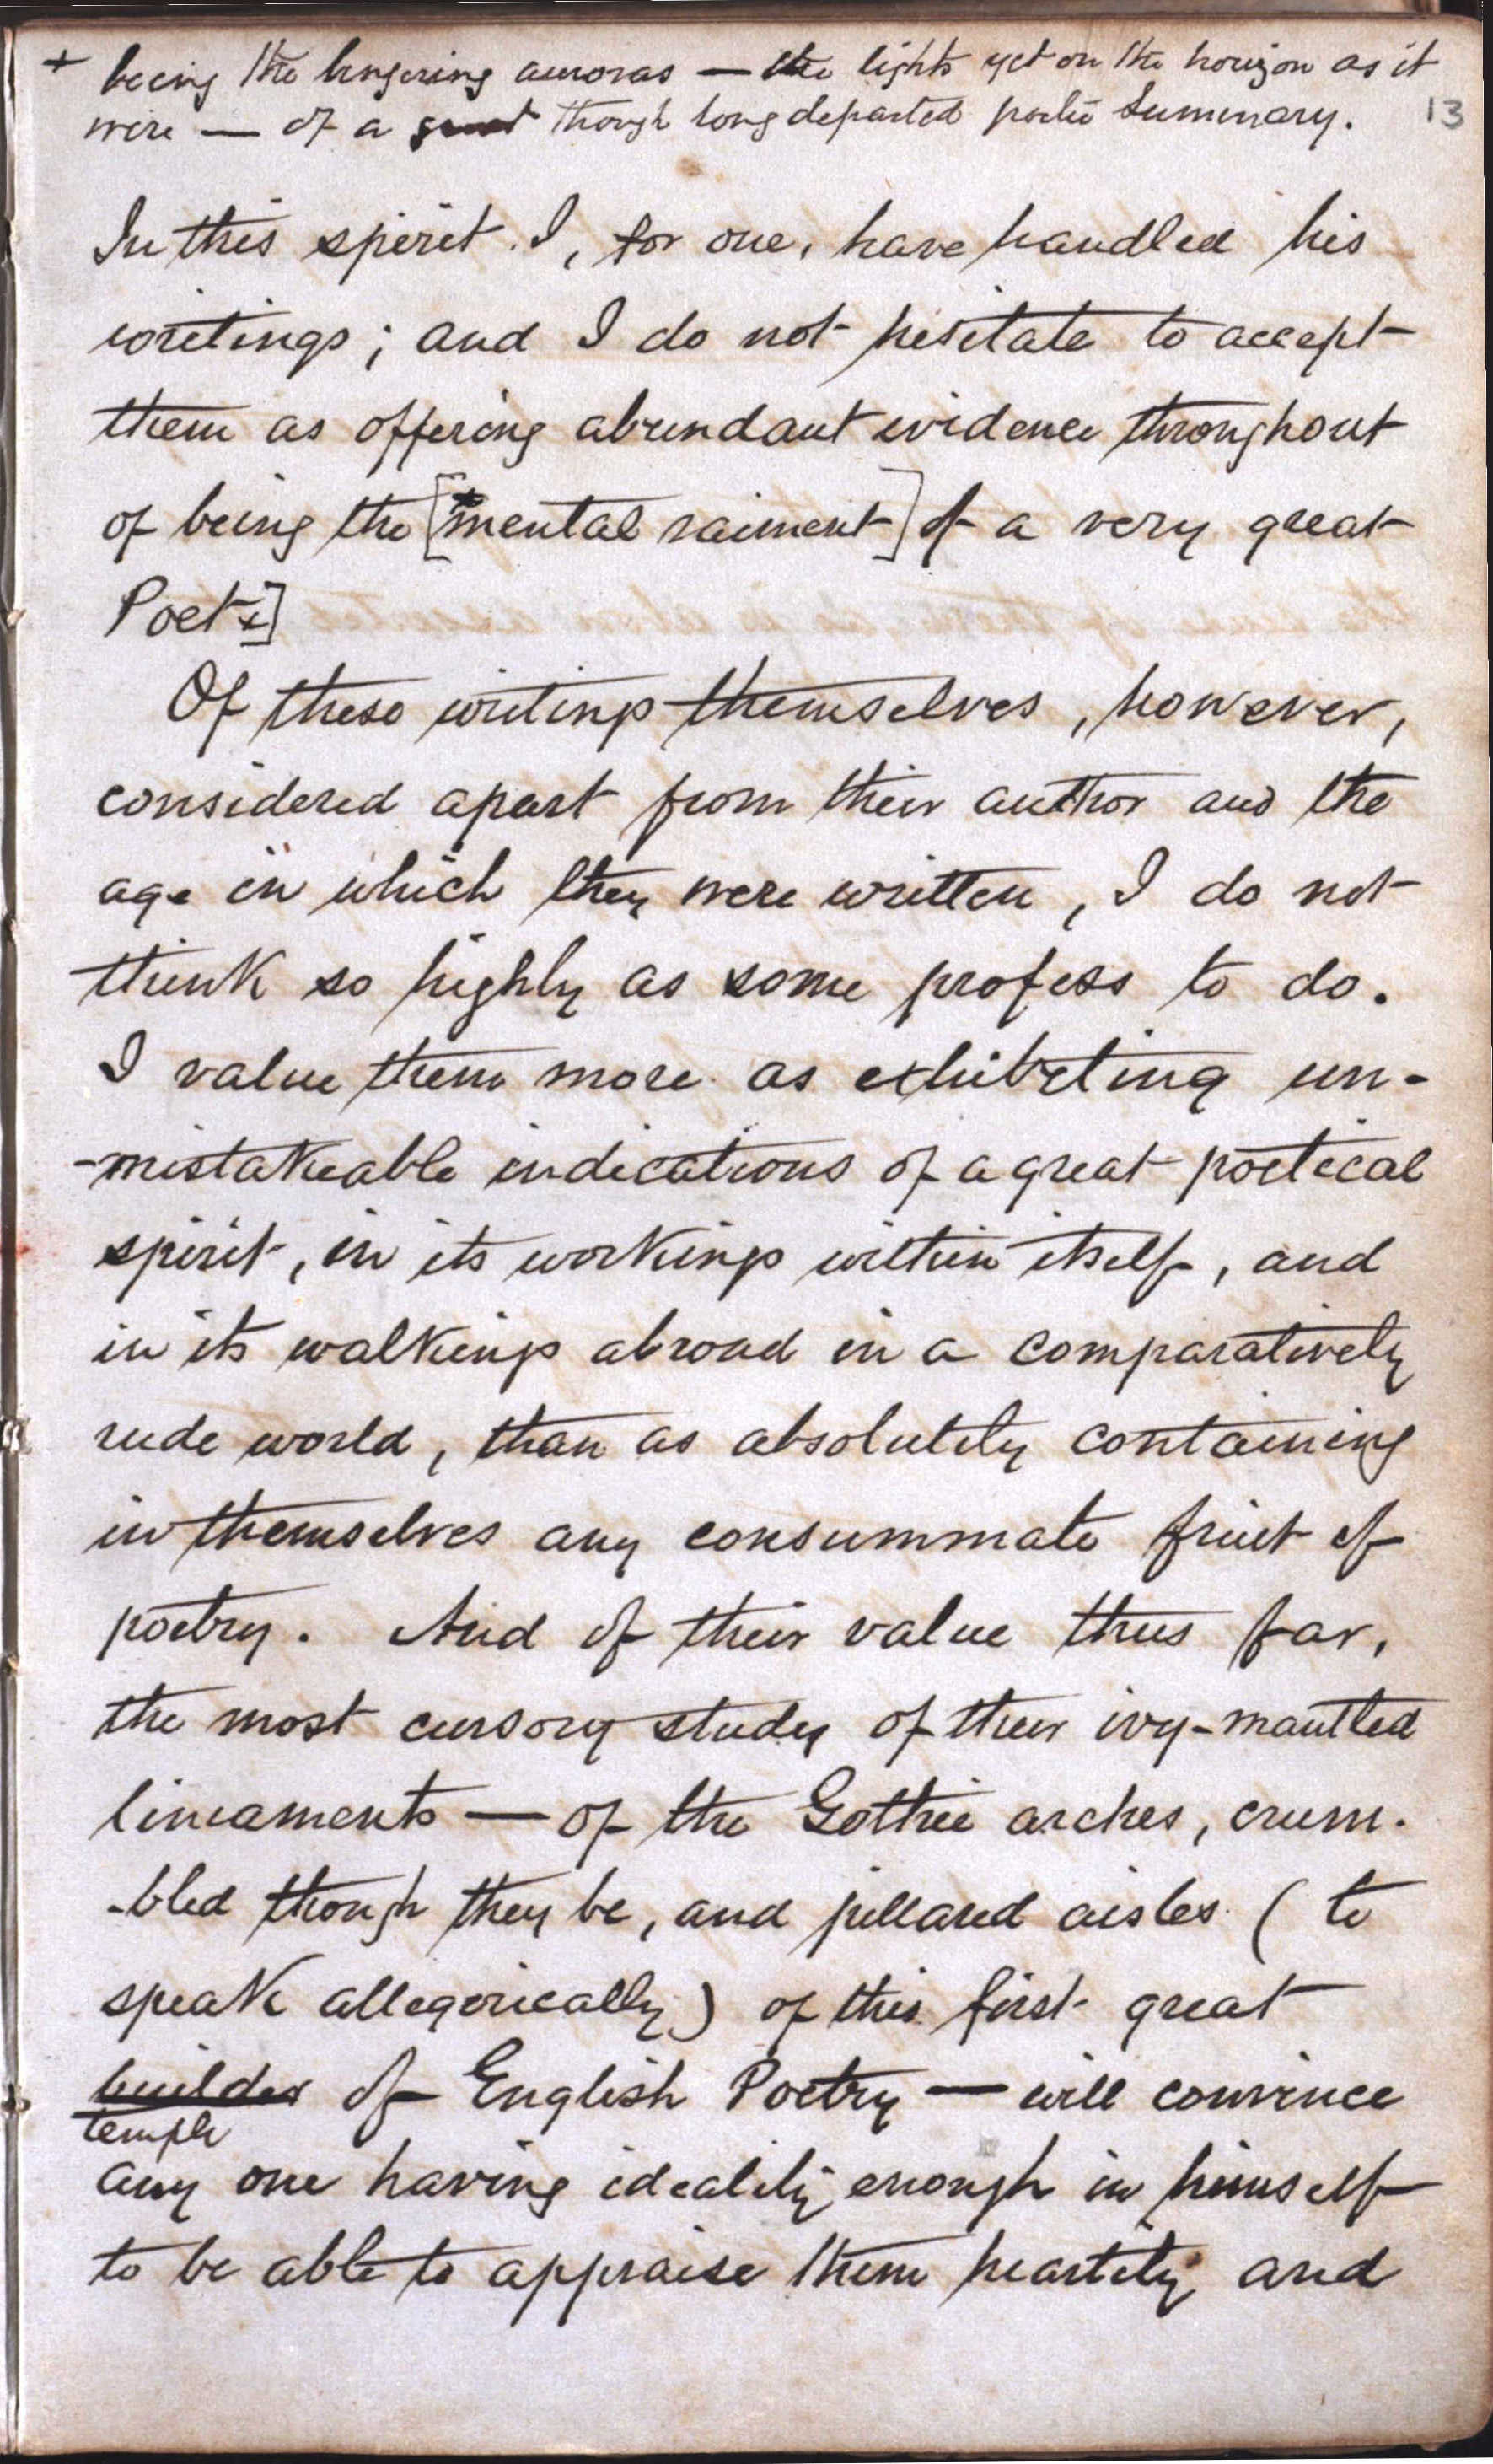 + being the lingering auroras — the lights yet on the horizon as it
were — of a great though long departed poetic Summary.
13
In this spirit I, for one, have handled his
writings; and I do not hesitate to accept
them as offering abundant evidence throughout
of being the [mental raiment] of a very great
Poet+]
Of these writings themselves, however,
considered apart from their author and the
age in which they were written, I do not
think so highly as some profess to do.
I value them more as exhibiting un-
-mistakeable indications of a great poetical
spirit, in its workings within itself, and
in its walkings abroad in a comparatively
rude world, than as absolutely containing
in themselves any consummate fruit of
poetry. And of their value thus far,
the most cursory study of their ivy-mantled
lineaments — of the Gothic arches, crum-
-bled though they be, and pillared aisles (to
speak allegorically) of this first great
builder of English Poetry — will convince
temple
any one having ideality enough in himself
to be able to appraise them heartily and